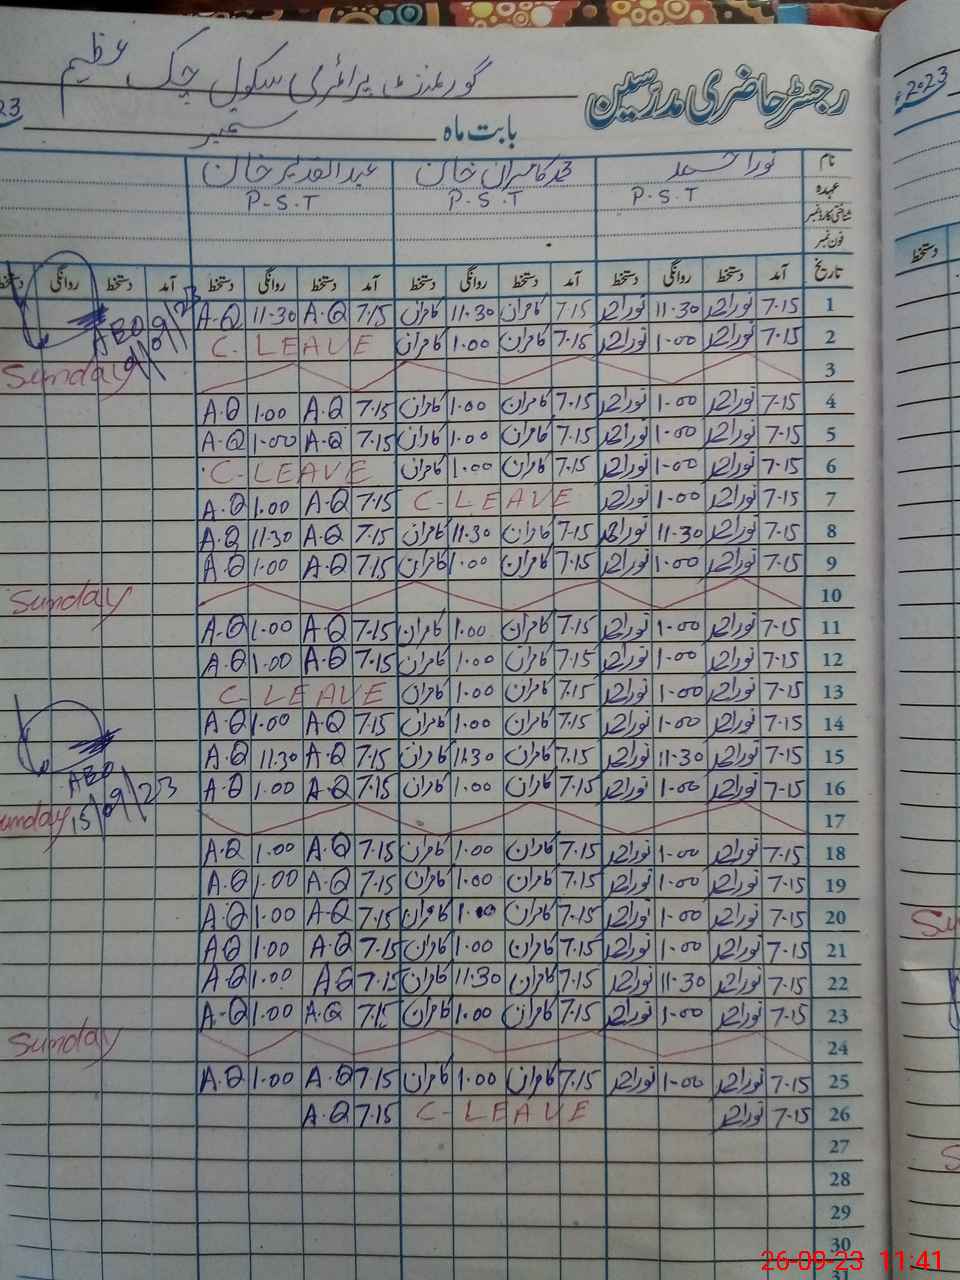 رجسٹر حاضری مدرسین گورنمنٹ پرائمری سکول چک عظیم 2023ء
بابت ماہ ستمبر 23
نام نور احمد محمد کامران خان عبدالقدیر خان
عہدہ P.S.T P.S.T P.S.T
شناختی کارڈ نمبر
فون نمبر
تاریخ آمد دستخط روانگی دستخط آمد دستخط روانگی دستخط آمد دستخط روانگی دستخط آمد دستخط روانگی دستخط دستخط
1 7.15 نوراحمد 11.30 نوراحمد 7.15 کامران 11.30 کامران 7.15 A.Q 11.30 A.Q
2 7.15 نوراحمد 1.00 نوراحمد 7.15 کامران 1.00 کامران C-LEAVE
3 Sunday
4 7.15 نوراحمد 1.00 نوراحمد 7.15 کامران 1.00 کامران 7.15 A.Q 1.00 A.Q
5 7.15 نوراحمد 1.00 نوراحمد 7.15 کامران 1.00 کامران 7.15 A.Q 1.00 A.Q
6 7.15 نوراحمد 1.00 نوراحمد 7.15 کامران 1.00 کامران C-LEAVE
7 7.15 نوراحمد 1.00 نوراحمد C-LEAVE 7.15 A.Q 1.00 A.Q
8 7.15 نوراحمد 11.30 نوراحمد 7.15 کامران 11.30 کامران 7.15 A.Q 11.30 A.Q
9 7.15 نوراحمد 1.00 نوراحمد 7.15 کامران 1.00 کامران 7.15 A.Q 1.00 A.Q
10 Sunday
11 7.15 نوراحمد 1.00 نوراحمد 7.15 کامران 1.00 کامران 7.15 A.Q 1.00 A.Q
12 7.15 نوراحمد 1.00 نوراحمد 7.15 کامران 1.00 کامران 7.15 A.Q 1.00 A.Q
13 7.15 نوراحمد 1.00 نوراحمد 7.15 کامران 1.00 کامران C-LEAVE
14 7.15 نوراحمد 1.00 نوراحمد 7.15 کامران 1.00 کامران 7.15 A.Q 1.00 A.Q
15 7.15 نوراحمد 11.30 نوراحمد 7.15 کامران 11.30 کامران 7.15 A.Q 11.30 A.Q
16 7.15 نوراحمد 1.00 نوراحمد 7.15 کامران 1.00 کامران 7.15 A.Q 1.00 A.Q AEO
17 Sunday 15/09/23
18 7.15 نوراحمد 1.00 نوراحمد 7.15 کامران 1.00 کامران 7.15 A.Q 1.00 A.Q
19 7.15 نوراحمد 1.00 نوراحمد 7.15 کامران 1.00 کامران 7.15 A.Q 1.00 A.Q
20 7.15 نوراحمد 1.00 نوراحمد 7.15 کامران 1.00 کامران 7.15 A.Q 1.00 A.Q
21 7.15 نوراحمد 1.00 نوراحمد 7.15 کامران 1.00 کامران 7.15 A.Q 1.00 A.Q
22 7.15 نوراحمد 11.30 نوراحمد 7.15 کامران 11.30 کامران 7.15 A.Q 1.00 A.Q
23 7.15 نوراحمد 1.00 نوراحمد 7.15 کامران 1.00 کامران 7.15 A.Q 1.00 A.Q
24 Sunday
25 7.15 نوراحمد 1.00 نوراحمد 7.15 کامران 1.00 کامران 7.15 A.Q 1.00 A.Q
26 7.15 نوراحمد C-LEAVE 7.15 A.Q
27
28
29
30
31
26-09-23 11:41